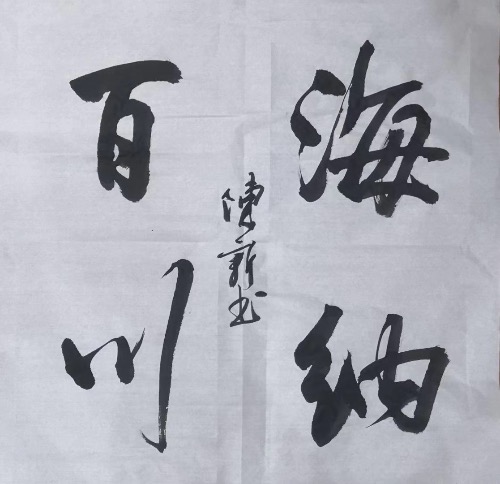 海纳
百川
陈新书